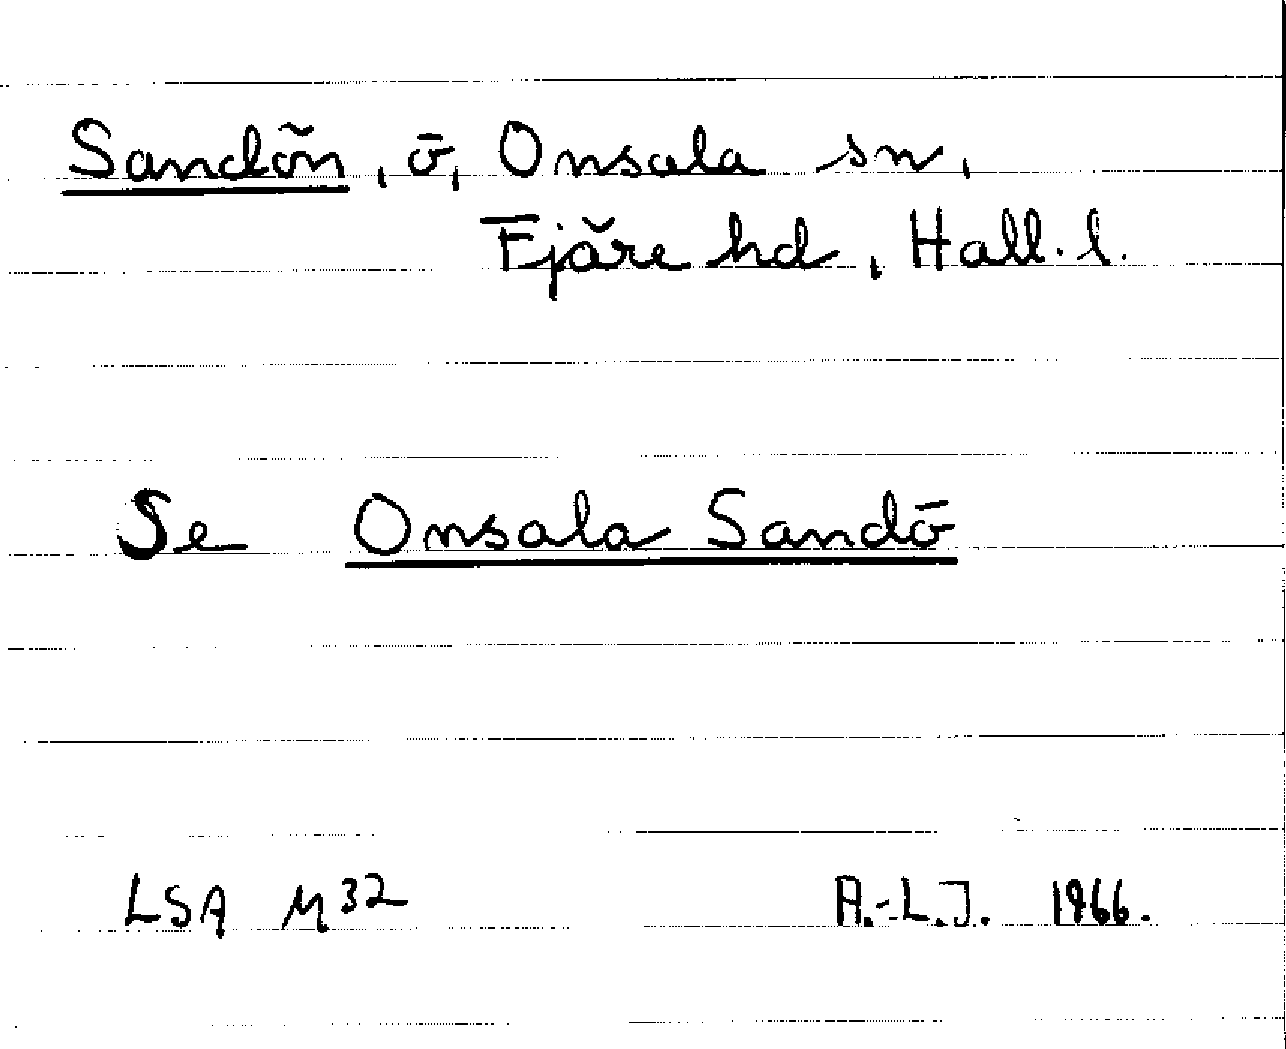 Sandön, ö, Onsala sn,
Fjäre hd, Hall. l.
Se Onsala Sandö
LSA M32 A.-L.J. 1966.